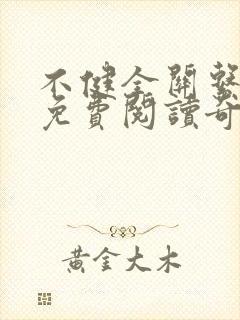 不健全關繫
免費閱讀奇
黃金大木